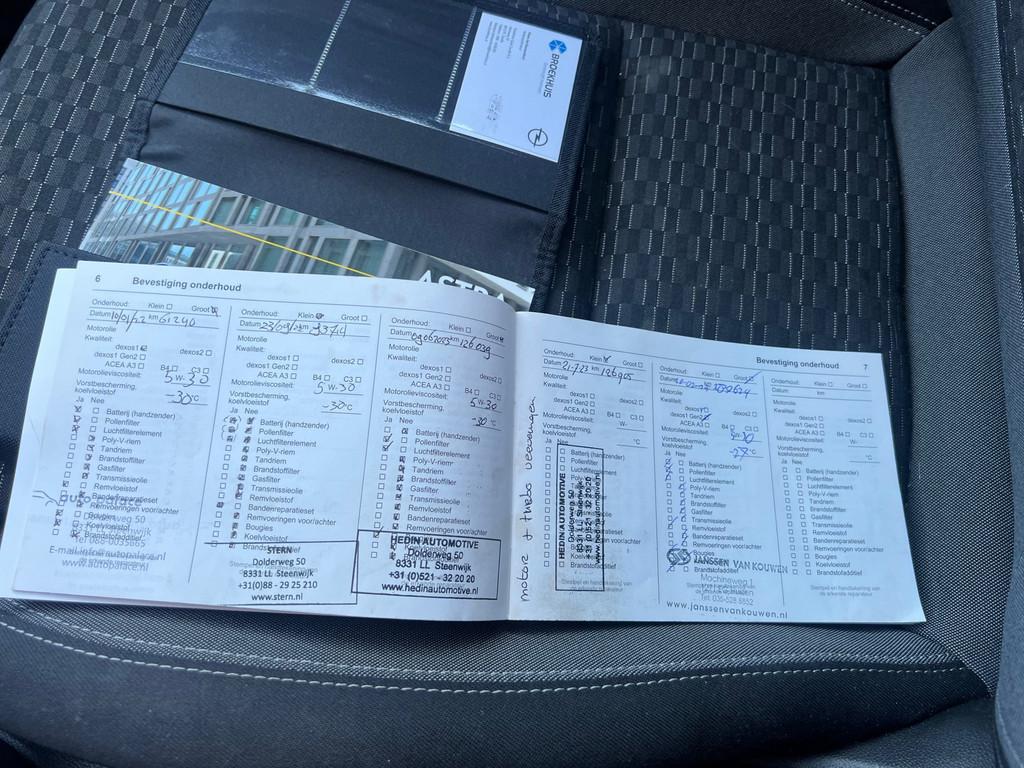 BROEKHUIS
ASTRA
6 Bevestiging onderhoud
Onderhoud: Klein Groot
Datum 10/01/22 km 61240
Motorolie
Kwaliteit:
dexos1 dexos2
dexos1 Gen2
ACEA A3 B4 C3
Motorolieviscositeit: 5 W-30
Vorstbescherming,
koelvloeistof -30°C
Ja Nee
Batterij (handzender)
Pollenfilter
Luchtfilterelement
Poly-V-riem
Tandriem
Brandstoffilter
Gasfilter
Transmissieolie
Remvloeistof
Bandenreparatieset
Remvoeringen voor/achter
Koelvloeistof
E-mail info@autopalace.nl
www.autopalace.nl
Onderhoud: Klein Groot
Motorolie
Kwaliteit:
dexos1 dexos2
dexos1 Gen2
ACEA A3 B4 C3
Motorolieviscositeit: 5 W-30
Vorstbescherming,
koelvloeistof -30°C
Ja Nee
Batterij (handzender)
Pollenfilter
Luchtfilterelement
Poly-V-riem
Tandriem
Brandstoffilter
Gasfilter
Transmissieolie
Remvloeistof
Bandenreparatieset
Remvoeringen voor/achter
Bougies
Koelvloeistof
STERN
Dolderweg 50
8331 LL Steenwijk
+31(0)88 - 29 25 210
www.stern.nl
Onderhoud: Klein Groot
Datum 09062023 km 126039
Motorolie
Kwaliteit:
dexos1 dexos2
dexos1 Gen2
ACEA A3 B4 C3
Motorolieviscositeit: 5 W-30
Vorstbescherming,
koelvloeistof -30 °C
Ja Nee
Batterij (handzender)
Pollenfilter
Luchtfilterelement
Poly-V-riem
Tandriem
Brandstoffilter
Gasfilter
Transmissieolie
Remvloeistof
Bandenreparatieset
Remvoeringen voor/achter
HEDIN AUTOMOTIVE
Dolderweg 50
8331 LL Steenwijk
+31 (0)521 - 32 20 20
www.hedinautomotive.nl
Bevestiging onderhoud 7
Onderhoud: Klein Groot
Datum 21-7-23 km 126905
Motorolie
Kwaliteit:
dexos1 dexos2
dexos1 Gen2
ACEA A3 B4 C3
Motorolieviscositeit: W-
Vorstbescherming,
koelvloeistof °C
Ja Nee
Batterij (handzender)
Pollenfilter
Luchtfilterelement
Poly-V-riem
Tandriem
Brandstoffilter
Gasfilter
Transmissieolie
Remvloeistof
Bandenreparatieset
Remvoeringen voor/achter
Bougies
Brandstofadditief
HEDIN AUTOMOTIVE
Dolderweg 50
8331 LL Steenwijk
+31 (0)521 - 32 20 20
www.hedinautomotive.nl
motor + turbo vervangen
Onderhoud: Klein Groot
Motorolie
Kwaliteit:
dexos1 dexos2
dexos1 Gen2
ACEA A3 B4 C3
Motorolieviscositeit:
Vorstbescherming,
koelvloeistof °C
Ja Nee
Batterij (handzender)
Pollenfilter
Luchtfilterelement
Poly-V-riem
Tandriem
Brandstoffilter
Gasfilter
Transmissieolie
Remvloeistof
Bandenreparatieset
Remvoeringen voor/achter
Bougies
Brandstofadditief
JANSSEN VAN KOUWEN
Tel. 035-528 6852
www.janssenvankouwen.nl
Onderhoud: Klein Groot
Datum km
Motorolie
Kwaliteit:
dexos1 dexos2
dexos1 Gen2
ACEA A3 B4 C3
Motorolieviscositeit: W-
Vorstbescherming,
koelvloeistof °C
Ja Nee
Batterij (handzender)
Pollenfilter
Luchtfilterelement
Poly-V-riem
Tandriem
Brandstoffilter
Gasfilter
Transmissieolie
Remvloeistof
Bandenreparatieset
Remvoeringen voor/achter
Bougies
Koelvloeistof
Brandstofadditief
Stempel en handtekening van
de erkende reparateur